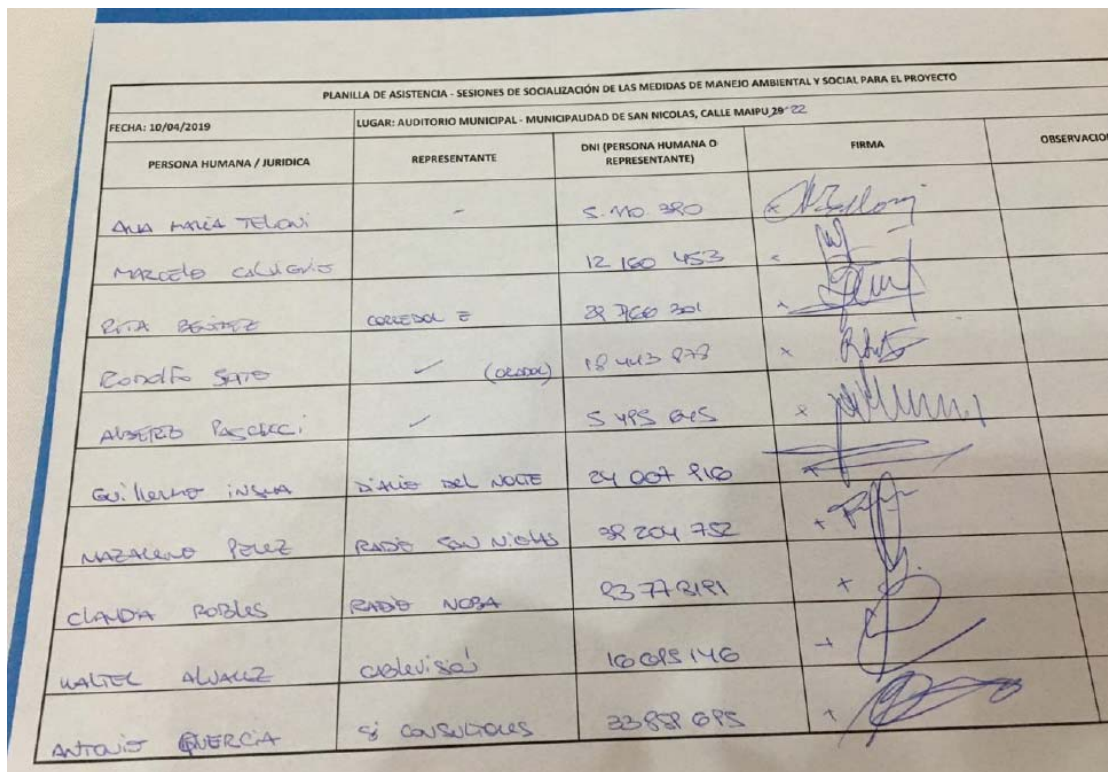 PLANILLA DE ASISTENCIA - SESIONES DE SOCIALIZACIÓN DE LAS MEDIDAS DE MANEJO AMBIENTAL Y SOCIAL PARA EL PROYECTO
FECHA: 10/04/2019 LUGAR: AUDITORIO MUNICIPAL - MUNICIPALIDAD DE SAN NICOLAS, CALLE MAIPU 29 22
PERSONA HUMANA / JURIDICA REPRESENTANTE DNI (PERSONA HUMANA O REPRESENTANTE) FIRMA OBSERVACIO
ANA MARIA TELONI - 5.110.380
MARCELO 12 160 453
RITA BENITEZ CORREDOR E
RODOLFO SOTO (ORADOR) 18 443 873
ALBERTO PASCUCCI
Guillermo INSUA DIARIO DEL NORTE 24 007 816
NAZARENO PEREZ RADIO SAN NICOLAS 38 204 752
CLAUDIA ROBLES RADIO NOBA
WALTER ALVAREZ CABLEVISIÓN 16 695 146
ANTONIO QUERCIA CONSULTORES